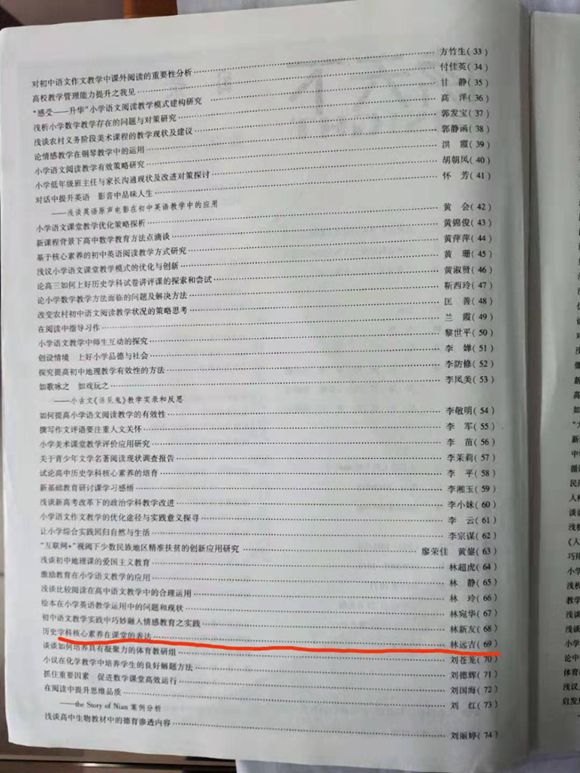 对初中语文作文教学中课外阅读的重要性分析 方竹生(33)
高校教学管理能力提升之我见 付佳英(34)
“感受——升华”小学语文阅读教学模式建构研究 甘 静(35)
浅析小学数学教学存在的问题与对策研究 高 萍(36)
浅谈农村义务阶段美术课程的教学现状及建议 郭发宝(37)
论情感教学在钢琴教学中的运用 郭静函(38)
小学语文阅读教学有效策略研究 洪 霞(39)
小学低年级班主任与家长沟通现状及改进对策探讨 胡朝凤(40)
对话中提升英语 影音中品味人生 怀 芳(41)
——浅谈英语原声电影在初中英语教学中的应用
小学语文课堂教学优化策略探析 黄 会(42)
新课程背景下高中数学教育方法点滴谈 黄锦俊(43)
基于核心素养的初中英语阅读教学方式研究 黄萍萍(44)
浅议小学语文课堂教学模式的优化与创新 黄 珊(45)
论高三如何上好历史学科试卷讲评课的探索和尝试 黄淑贤(46)
论小学数学教学方法面临的问题及解决方法 靳西玲(47)
改变农村初中语文阅读教学状况的策略思考 匡 善(48)
在阅读中指导习作 兰 霞(49)
小学语文教学中师生互动的探究 黎世平(50)
创设情境 上好小学品德与社会 李 婵(51)
探究提高初中地理教学有效性的方法 李防修(52)
如歌咏之 如戏玩之 李凤美(53)
——小古文《活见鬼》教学实录和反思
如何提高小学语文阅读教学的有效性 李敬明(54)
撰写作文评语要注重人文关怀 李 军(55)
小学美术课堂教学评价应用研究 李 苗(56)
关于青少年文学名著阅读现状调查报告 李茉莉(57)
试论高中历史学科核心素养的培育 李 平(58)
新基础教育研讨课学习感悟 李湘玉(59)
浅谈新高考改革下的政治学科教学改进 李小妹(60)
小学语文作文教学的优化途径与实践意义探寻 李 云(61)
让小学综合实践回归自然与生活 李宗谋(62)
“互联网+”视阈下少数民族地区精准扶贫的创新应用研究 廖荣佳 黄鎏(63)
浅谈初中地理课的爱国主义教育 林超虎(64)
激励教育在小学语文教学的应用 林 静(65)
浅谈比较阅读在高中语文教学中的合理运用 林 玲(66)
绘本在小学英语教学运用中的问题和现状 林宛华(67)
初中语文教学实践中巧妙融入情感教育之实践 林新友(68)
历史学科核心素养在课堂的表达 林远吉(69)
谈谈如何培养具有凝聚力的体育教研组 刘苍龙(70)
小议在化学教学中培养学生的良好解题方法 刘德辉(71)
抓住重要因素 促进数学课堂高效运行 刘国海(72)
在阅读中提升思维品质 刘 红(73)
——the Story of Nian 案例分析
浅谈高中生物教材中的德育渗透内容 刘丽婷(74)